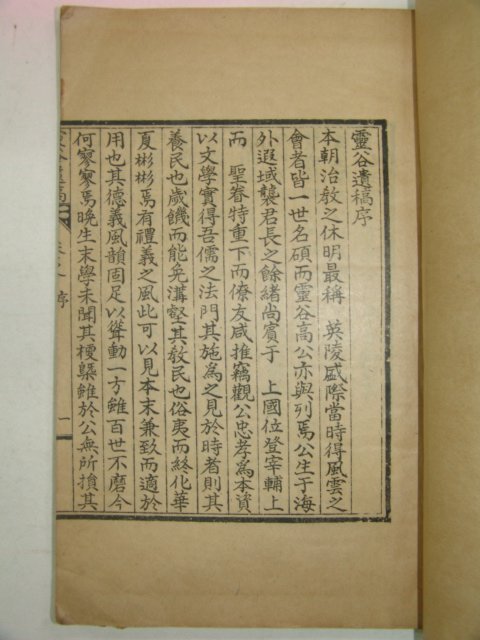 靈谷遺稿序
本朝治敎之休明最稱 英陵盛際當時得風雲之
會者皆一世名碩而靈谷高公亦與列焉公生于海
外遐域襲君長之餘緖尚賓于 上國位登宰輔上
而 聖眷特重下而僚友咸推竊觀公忠孝爲本資
以文學實得吾儒之法門其施爲之見於時者則其
養民也歲饑而能免溝壑其敎民也俗夷而終化華
夏彬彬焉有禮義之風此可以見本末兼致而適於
用也其德義風韻固足以聳動一方雖百世不磨今
何寥寥焉晩生末學未聞其梗槩雖於公無所損其
序
一